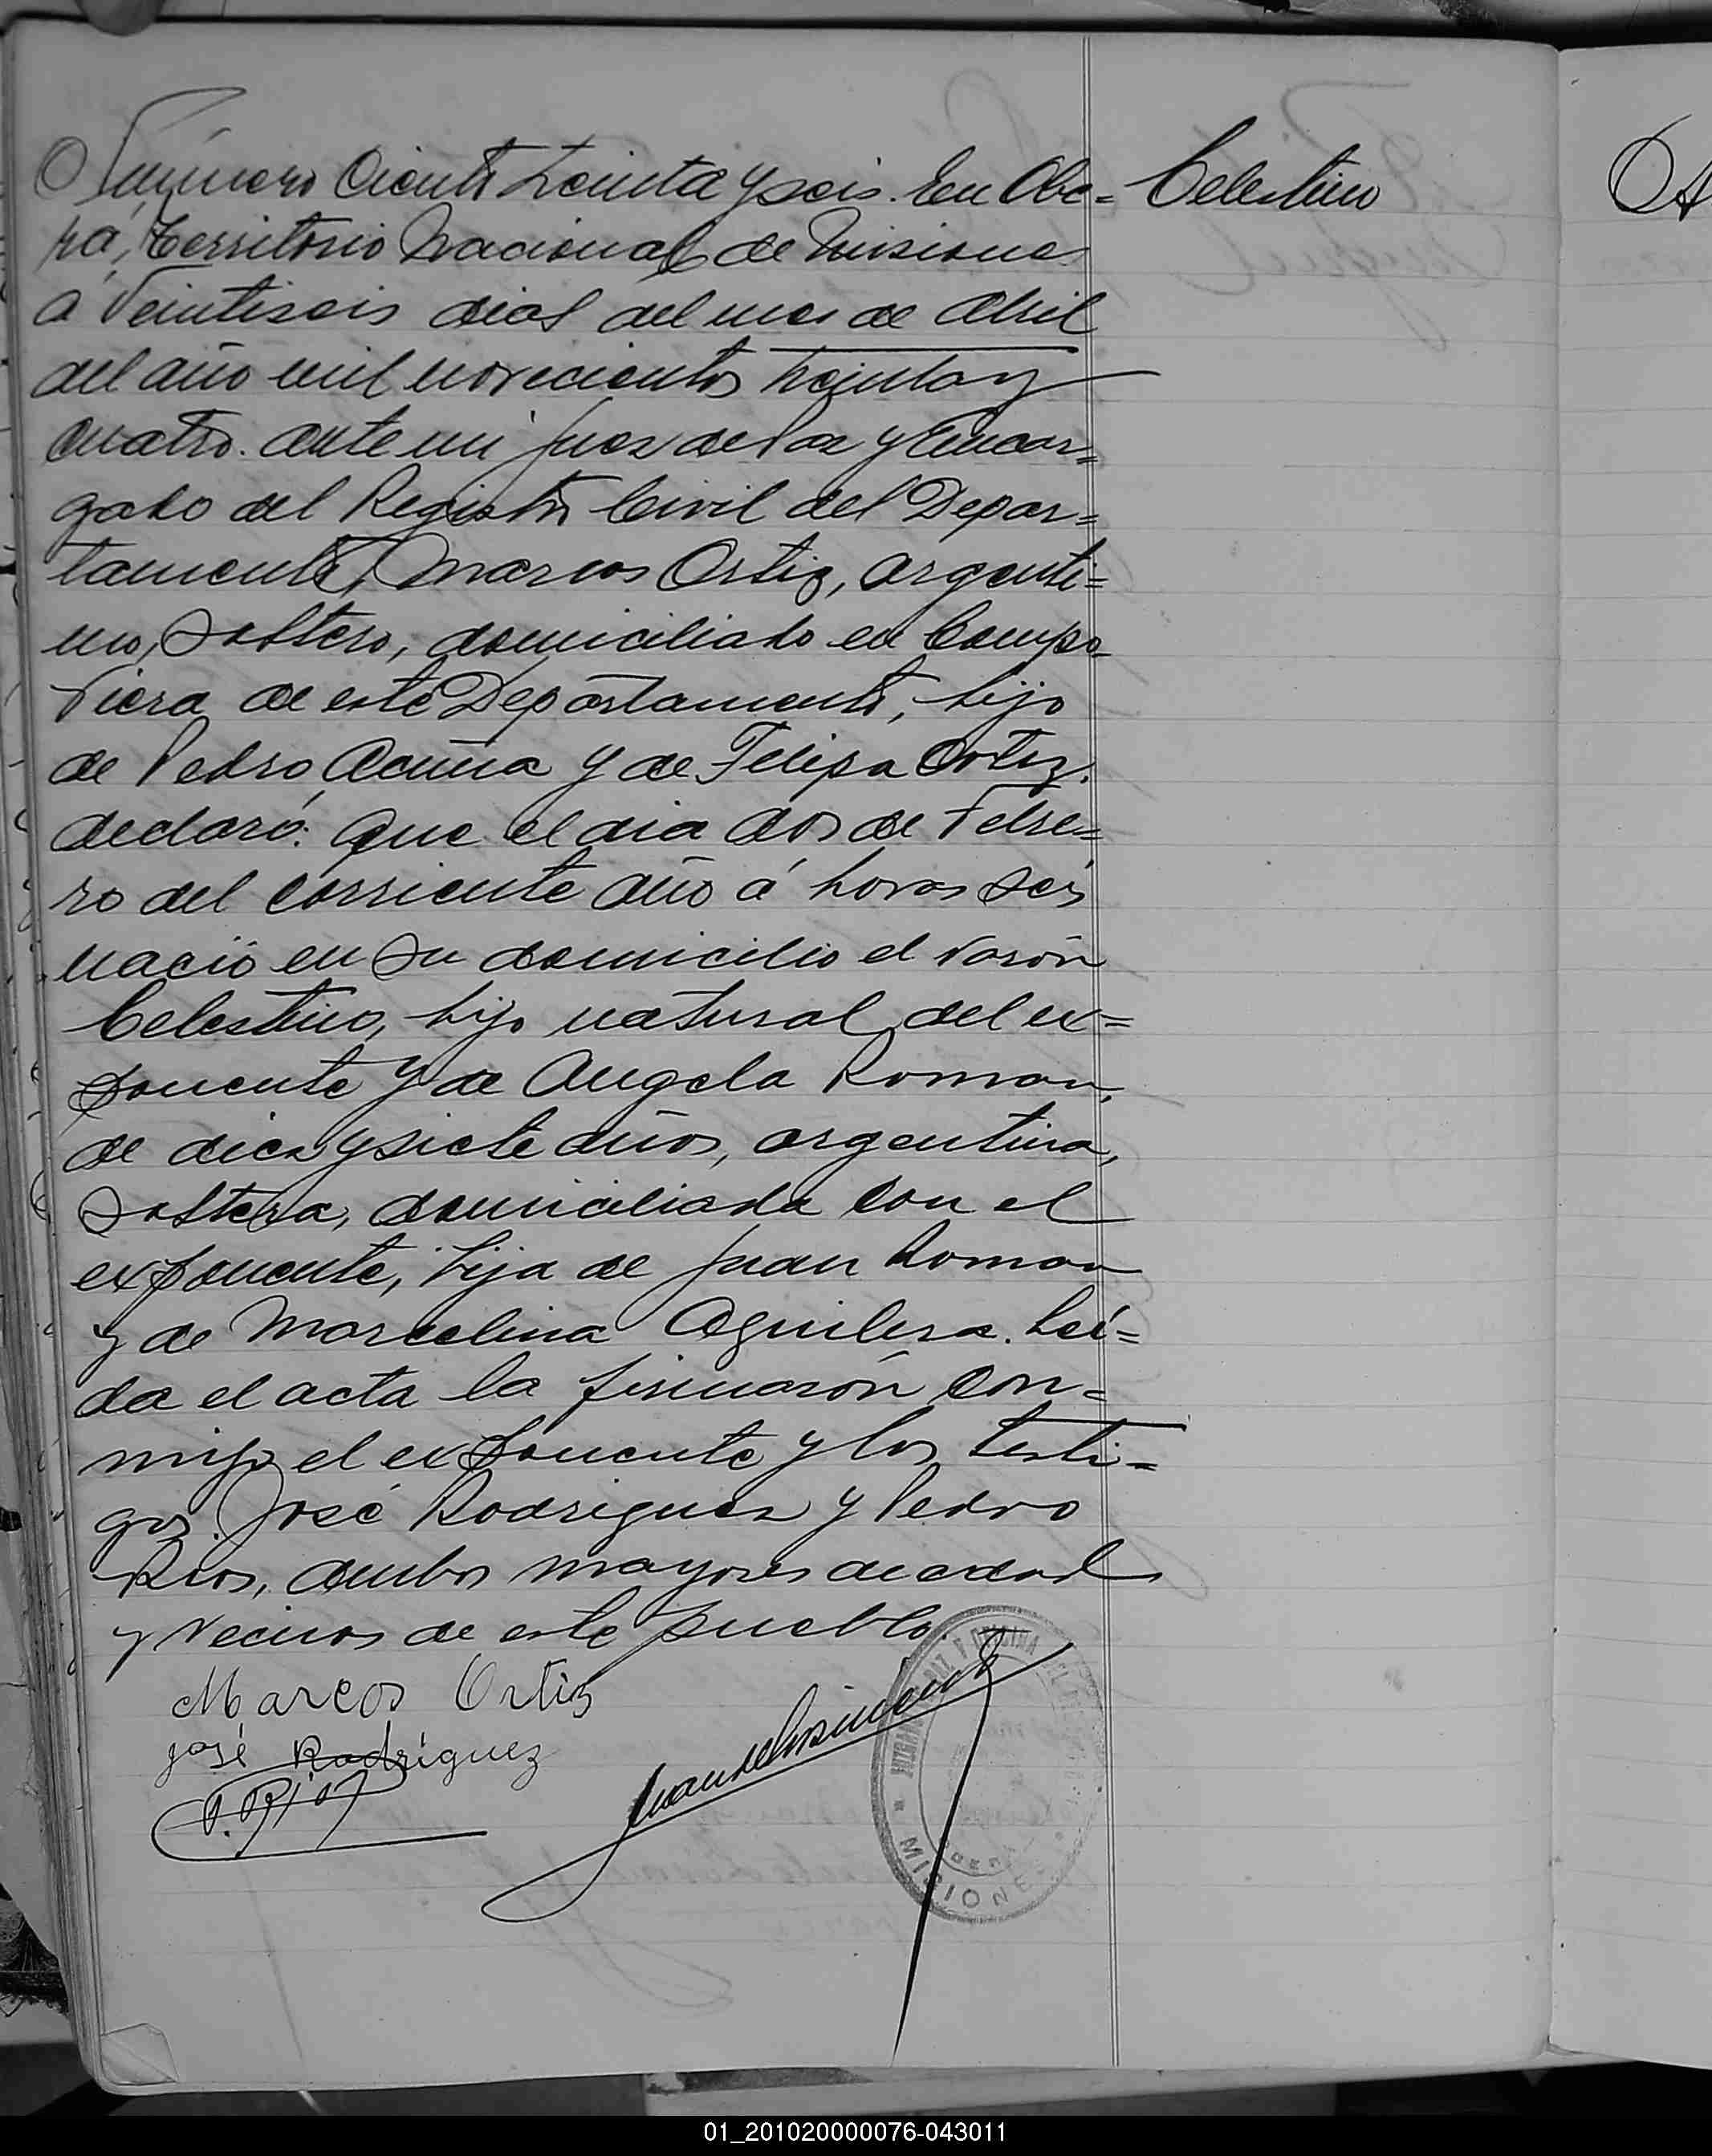 Número Ciento treinta y seis. En Obe= Celestino
rá, Territorio Nacional de Misiones
á Veintiseis dias del mes de Abril
del año mil novecientos treinta y
cuatro. Ante mi Juez de Paz y Encar=
gado del Registro Civil del Depar=
tamento, Marcos Ortiz, argenti=
no, soltero, domiciliado en Campo
Viera de este Departamento, hijo
de Pedro Acuña y de Felipa Ortiz.
declaró: que el dia dos de Febre=
ro del corriente año á horas seis
nació en su domicilio el varón
Celestino, hijo natural del ex=
ponente y de Angela Roman,
de diez y siete años, argentina,
soltera, domiciliada con el
exponente, hija de Juan Roman
y de Marcelina Aguilera. Leí=
da el acta la firmarón con=
migo el exponente y los testi=
gos. José Rodriguez y Pedro
Rios, ambos mayores de edad
y vecinos de este pueblo.
Marcos Ortiz
José Rodríguez
P. Ríos
MISIONES
01_201020000076-043011